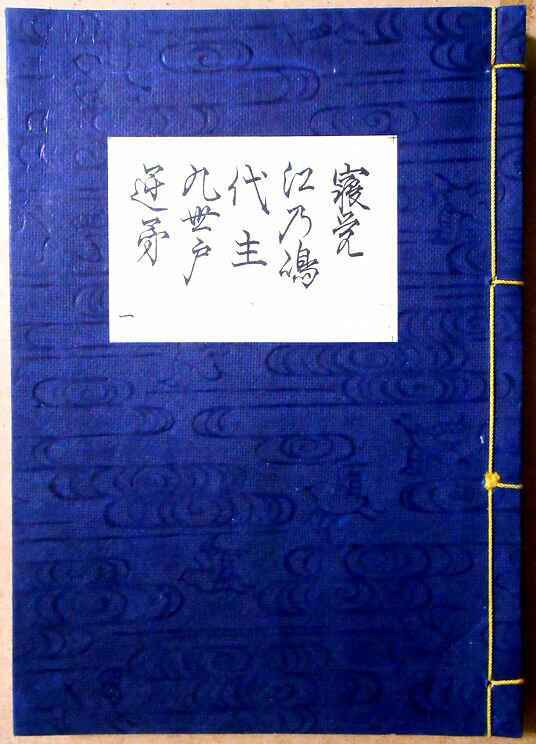 寝覚
江乃嶋
代主
九世戸
逆矛
一